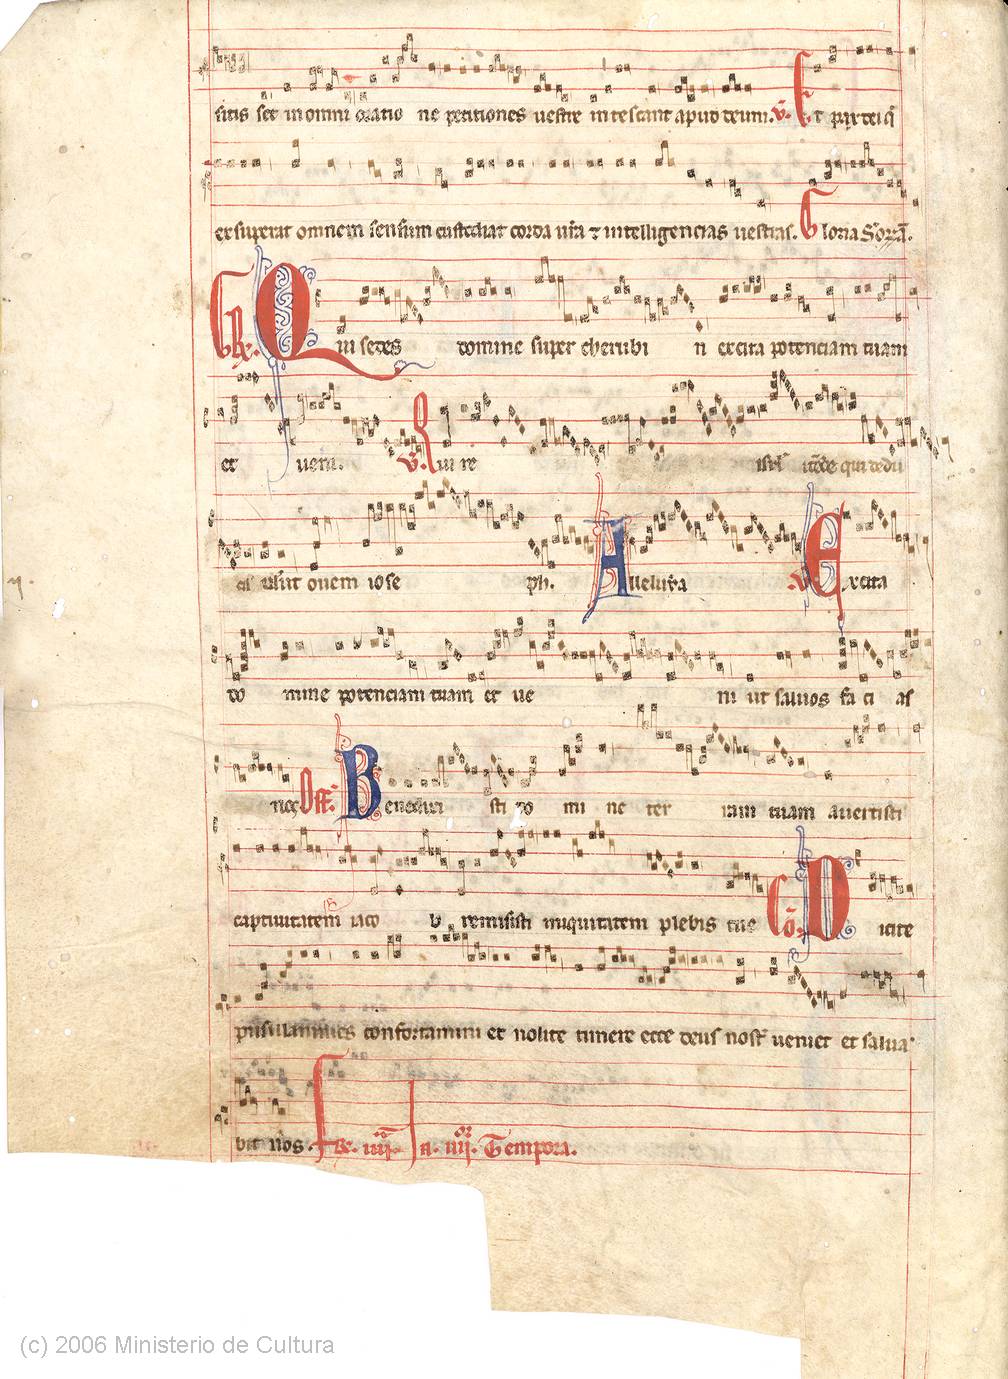 sitis set in omni oratio ne petitiones vestre in tescant aput deum. V. Et pax dei q̄
exsuperat omnem sensum custodiat corda vr̄a ⁊ intelligencias vestras. Gloria Sorrā.
GR. Qui sedes domine super cherubi n excita potenciam tuam
et veni. V. Qui re isrl̄ qui dedu
cis vl̄ut ovem iose ph. Alleluya V. Excita
do mine potenciam tuam et ve ni ut salvos fa ci as
nos Off. Benedixi sti do mi ne ter ram tuam avertisti
captivitatem iaco b. remisisti iniquitatem plebis tue Cō. Dicite
pusillanimes confortamini et nolite timere ecce deus nost̄ veniet et salva
bit nos. Fr̄. iiii. In. iiiior. Tempora.
(c) 2006 Ministerio de Cultura